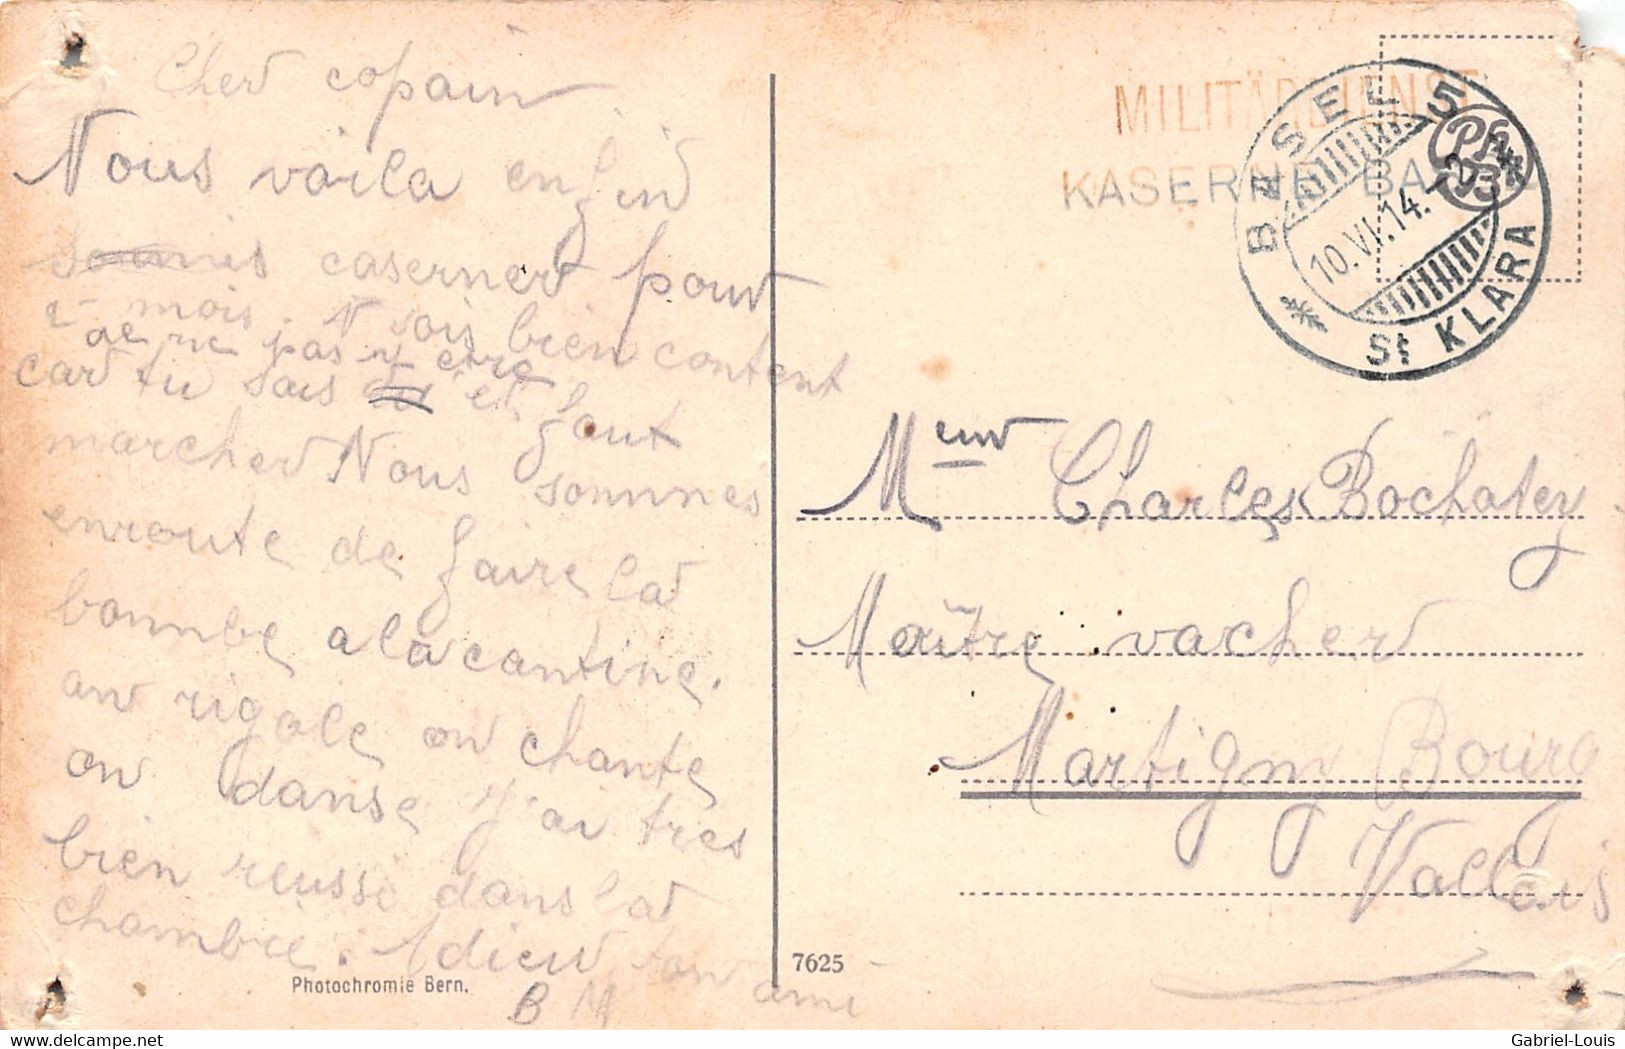 Cher copain
Nous voila enfin
caserner pour
2 mois. sois bien content
de ne pas y etre
car tu sais et faut
marcher Nous sommes
enroute de faire la
bombe a la cantine.
on rigole on chante
on danse j'ai tres
bien reusse dans la
chambre. Adieu ton ami
B M
Photochromie Bern.
7625
MILITÄRDIENST
KASERNE BASEL
BASEL 5
10.VI.14.
St KLARA
Ph B
Meur Charles Bochatey
Maître vacher
Martigny Bourg
Vallais
Gabriel-Louis